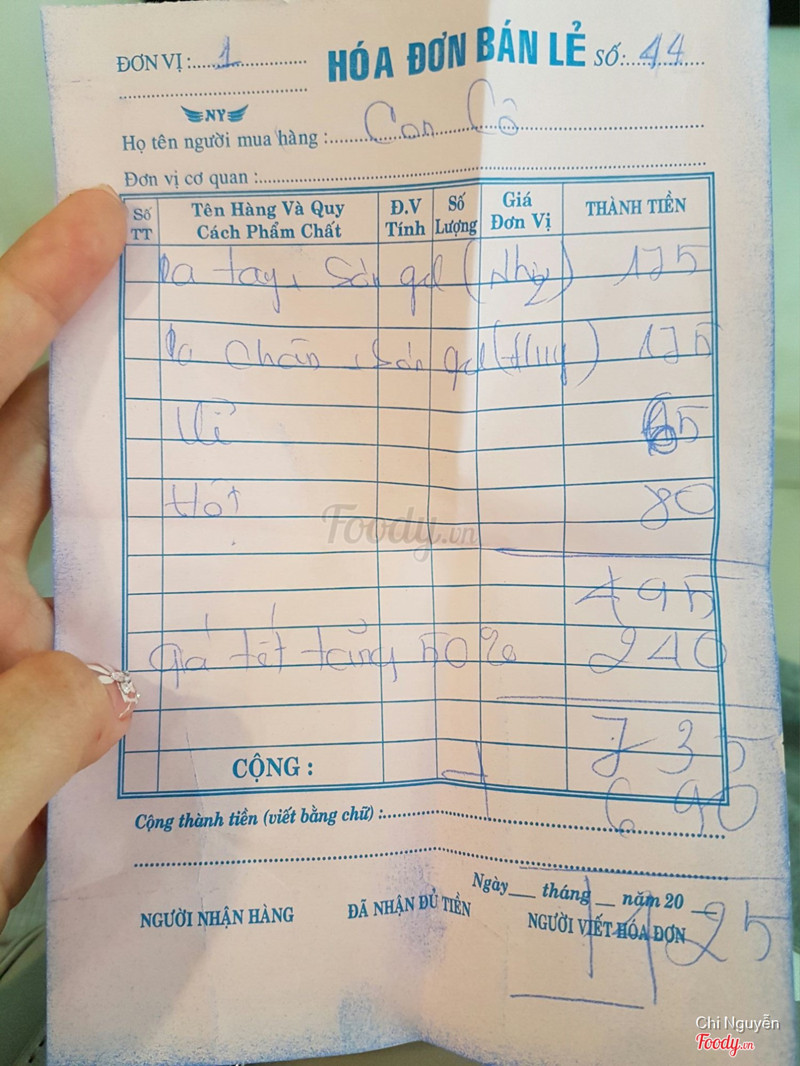 ĐƠN VỊ : 1
HÓA ĐƠN BÁN LẺ SỐ: 44
NY
Họ tên người mua hàng : Con Cô
Đơn vị cơ quan :
Số TT
Tên Hàng Và Quy Cách Phẩm Chất
Đ.V Tính
Số Lượng
Giá Đơn Vị
THÀNH TIỀN
tay, Sơn gel 175
chân, Sơn gel (Huy) 175
65
Hót 80
Foody.vn
495
giá tết tăng 50% 240
735
CỘNG :
690
Cộng thành tiền (viết bằng chữ) :
Ngày__ tháng __ năm 20 __
NGƯỜI NHẬN HÀNG
ĐÃ NHẬN ĐỦ TIỀN
NGƯỜI VIẾT HÓA ĐƠN
1425
Chi Nguyễn
Foody.vn